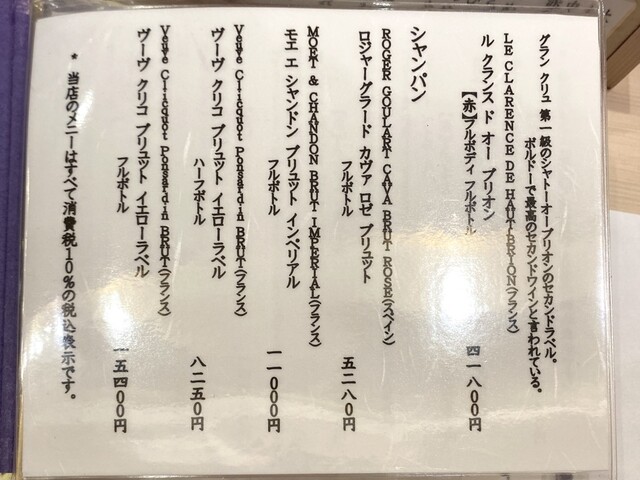 グラン クリュ 第一級のシャトーオー ブリオンのセカンドラベル。
ボルドーで最高のセカンドワインと言われている。
LE CLARENCE DE HAUT BRYON(フランス)
ル クランス ド オー ブリオン
【赤】フルボディ フルボトル 四一八〇〇円
シャンパン
ROGER GOULART CAVA BRUT ROSE(スペイン)
ロジャーグラード カヴァ ロゼ ブリュット
フルボトル 五二八〇円
MOET & CHANDON BRUT IMPERIAL(フランス)
モエ エ シャンドン ブリュット インペリアル
フルボトル 一一〇〇〇円
Veuve Clicquot Ponsardin BRUT(フランス)
ヴーヴ クリコ ブリュット イエローラベル
ハーフボトル 八二五〇円
Veuve Clicquot Ponsardin BRUT(フランス)
ヴーヴ クリコ ブリュット イエローラベル
フルボトル 一五四〇〇円
* 当店のメニューはすべて消費税10%の税込表示です。